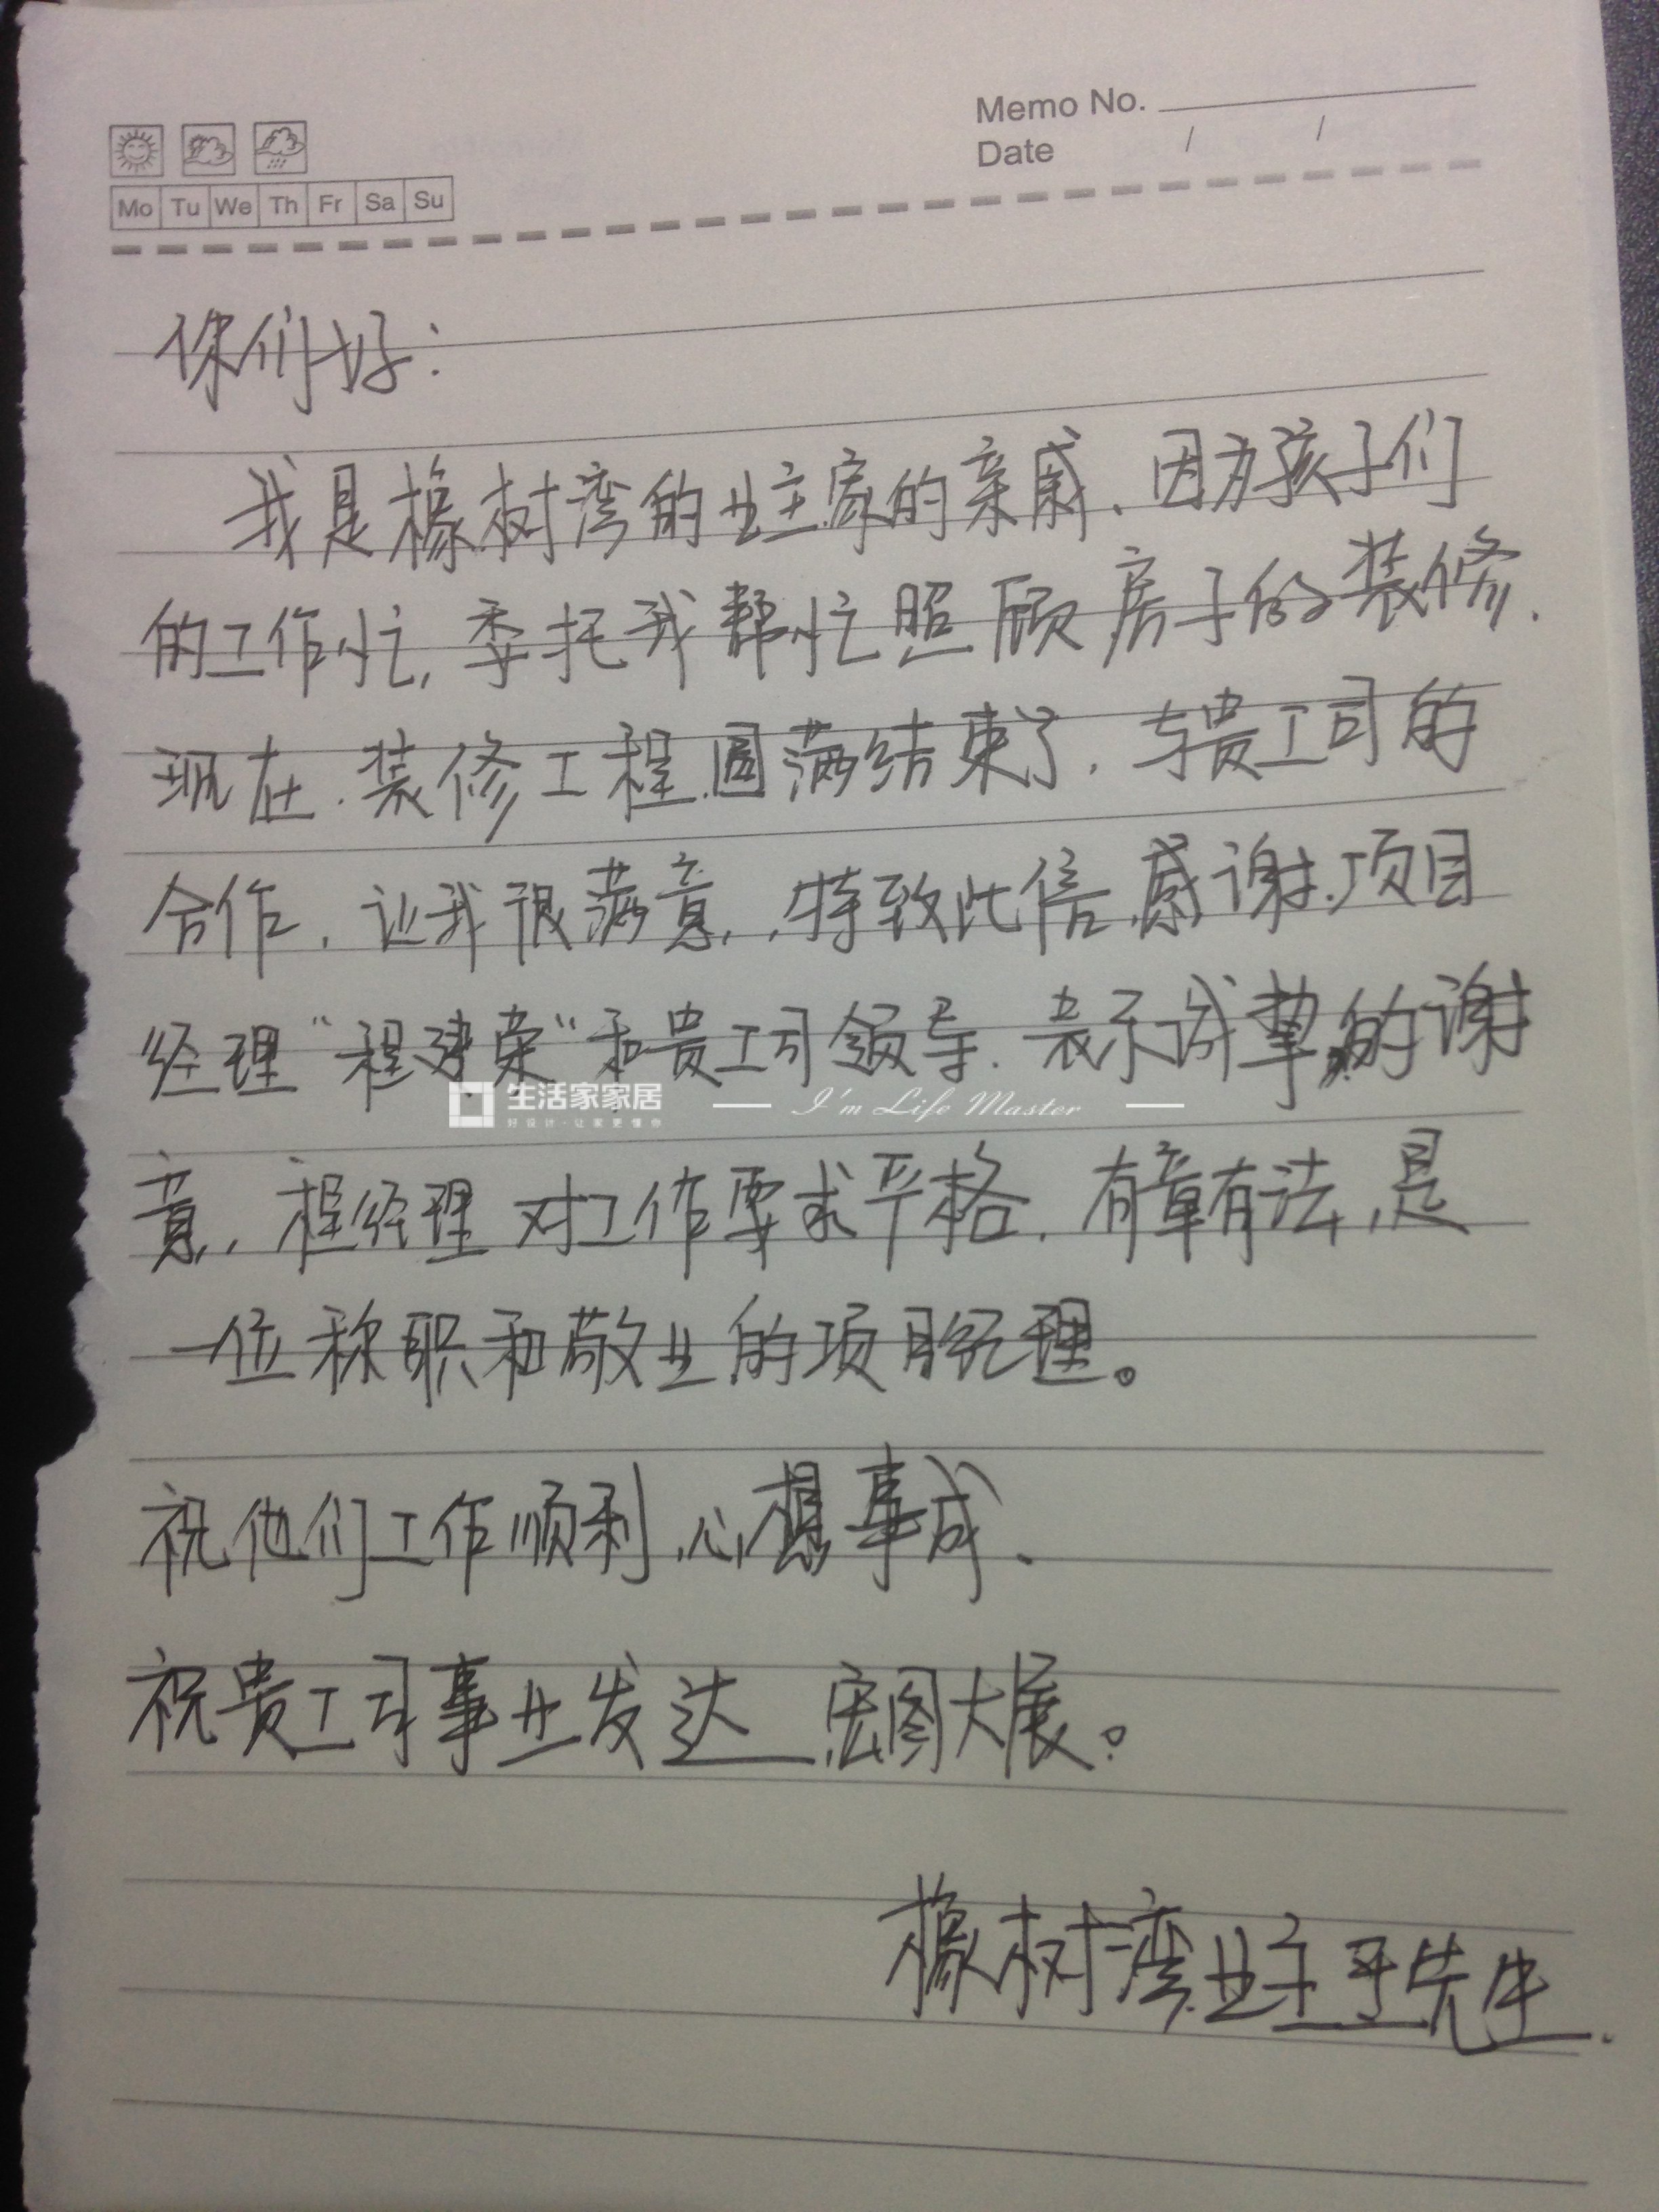 Memo No.
Date / /
Mo Tu We Th Fr Sa Su
你们好:
我是橡树湾的业主家的亲戚、因为孩子们
的工作忙,委托我帮忙照顾房子的装修.
现在.装修工程.圆满结束了.与贵公司的
合作.让我很满意,.特致此信.感谢.项目
经理“程建荣”和贵公司领导.表示诚挚的谢
意,.程经理对工作要求严格.有章有法,是
一位称职和敬业的项目经理。
祝他们工作顺利,心想事成、
祝贵公司事业发达 宏图大展。
橡树湾业主于先生.
生活家家居 — I'm Life Master —
好设计·让家更懂你